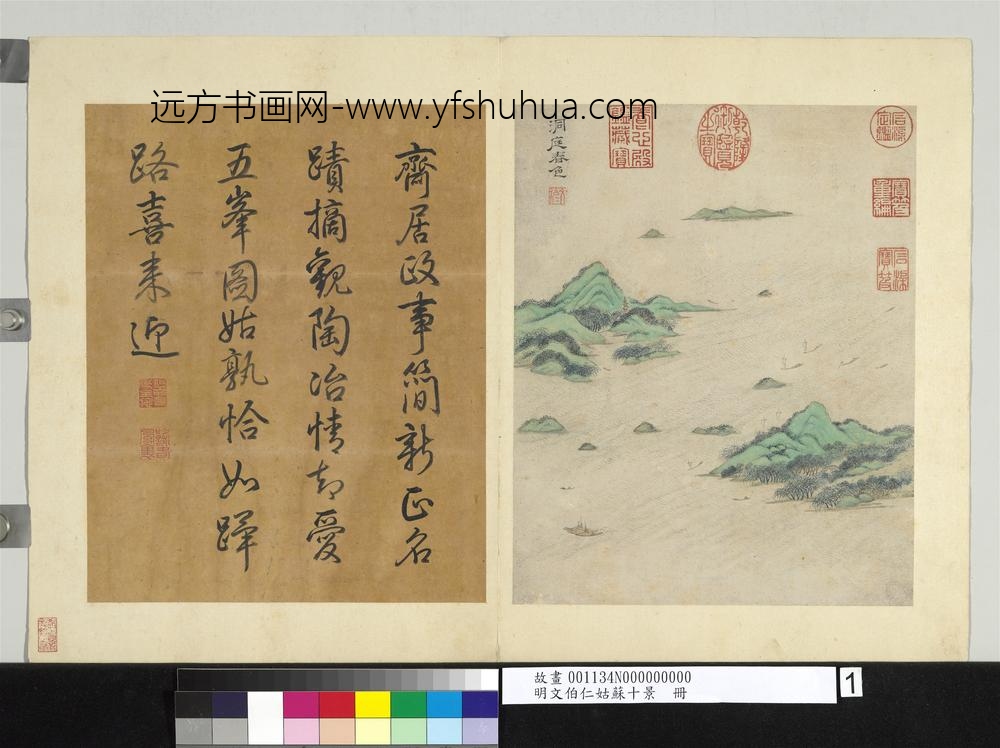 远方书画网-www.yfshuhua.com
洞庭春色
齋居政事簡新正名
蹟摘觀陶冶情却愛
五峯圖姑孰恰如蹕
路喜来迎
故畫 001134N000000000
明文伯仁姑蘇十景 冊
1